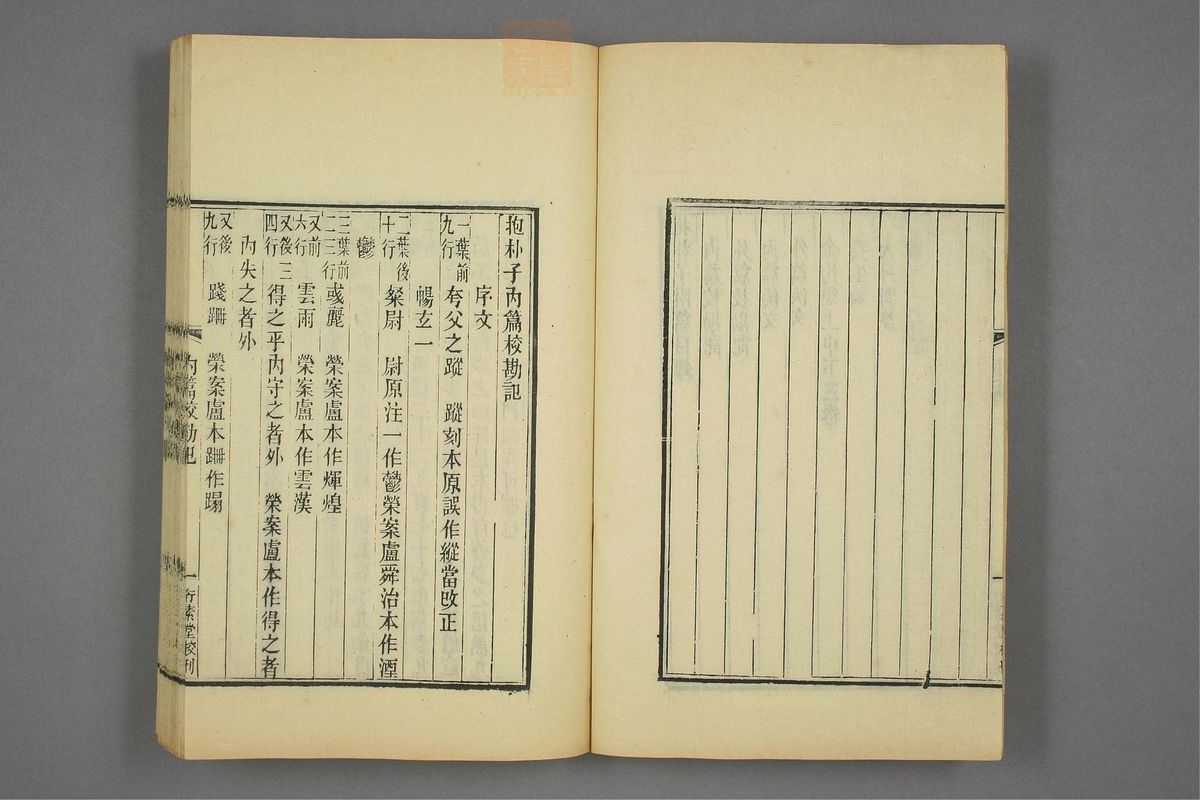 抱朴子內篇校勘記
序文
一葉前九行 夸父之蹤 蹤刻本原誤作縱當改正
暢玄一
二葉後十行 粲尉 尉原注一作鬱榮案盧舜治本作湮
鬱
三葉前二三行 彧麗 榮案盧本作煇煌
又前六行 雲雨 榮案盧本作雲漢
又後三四行 得之乎內守之者外 榮案盧本作得之者
內失之者外
又後九行 踐跚 榮案盧本跚作蹋
內篇校勘記 一 行素堂校刊